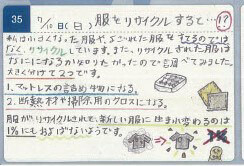 35
7/10日(日) 服をリサイクルすると… 1?
私は小さくなった服や、よごれた服をすてるのでは
なく、リサイクルしています。また、リサイクルされた服は
なにになるか気になったので調べてみました。
大きく分けて2つです。
1.マットレスの詰め物になる。
2.断熱材や掃除用のクロスになる。
服がリサイクルされて、新しい服に生まれ変わるのは
1%にもおよばないようです。